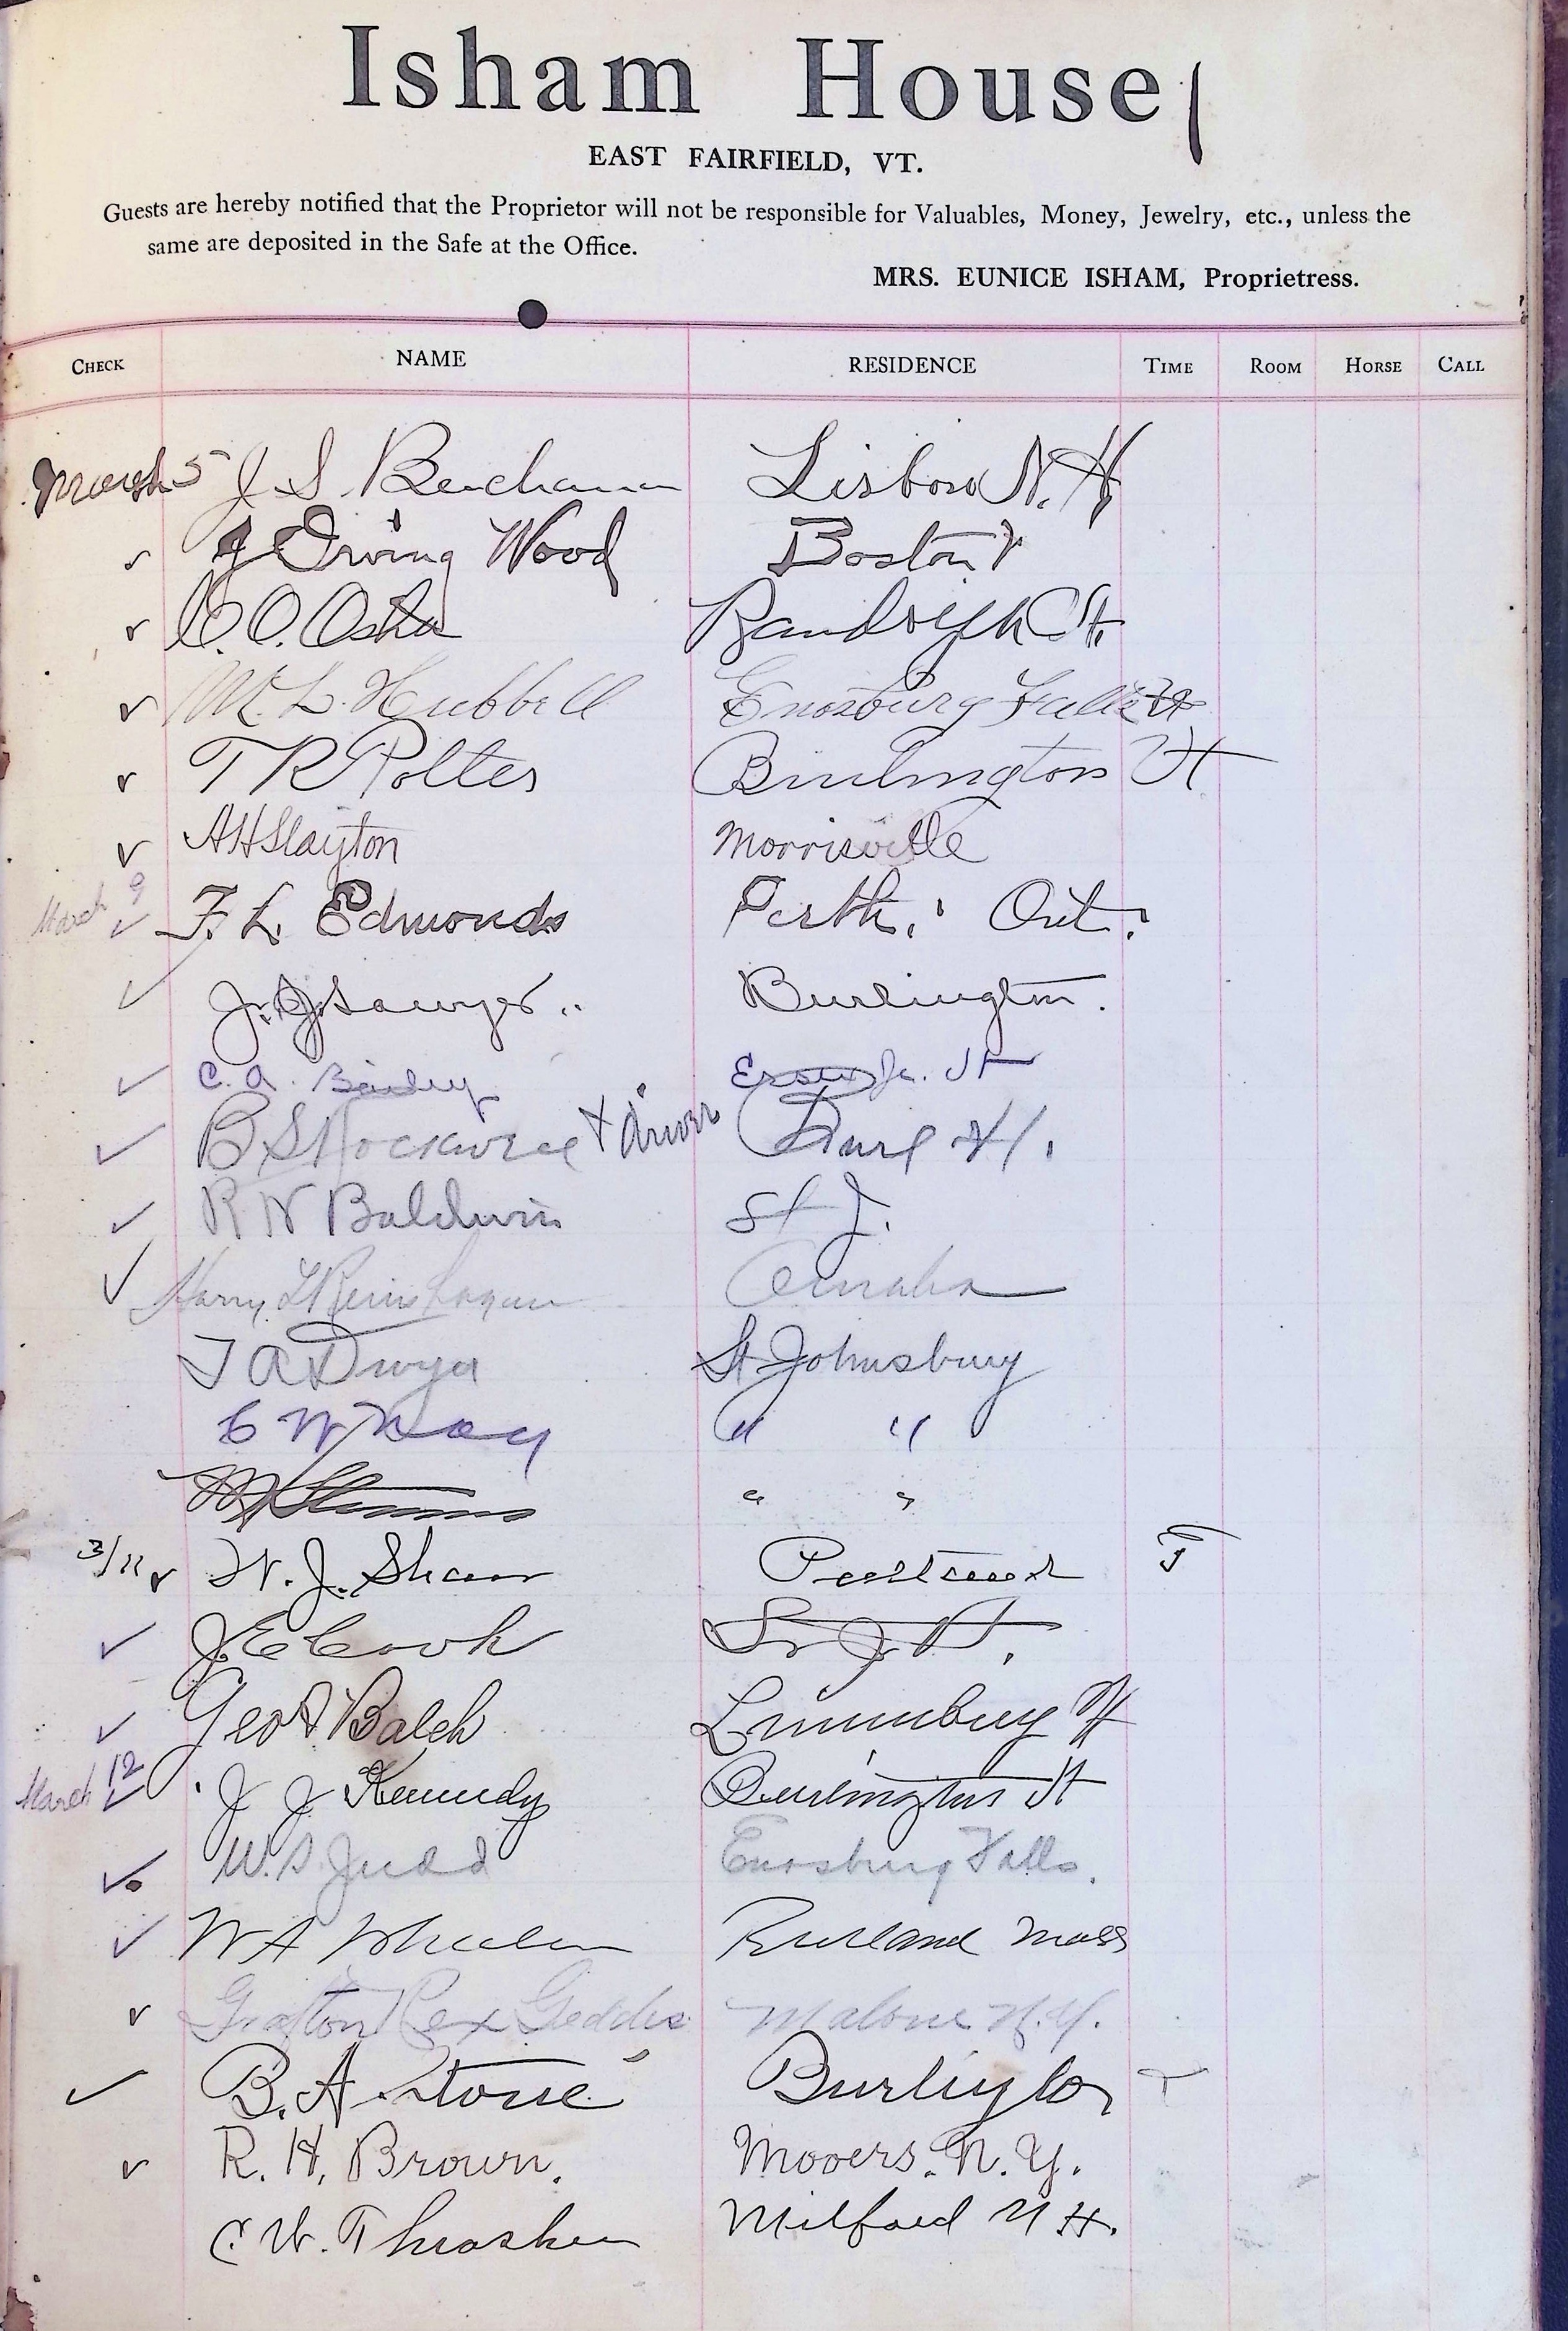 Isham House
EAST FAIRFIELD, VT.
Guests are hereby notified that the Proprietor will not be responsible for Valuables, Money, Jewelry, etc., unless the
same are deposited in the Safe at the Office.
MRS. EUNICE ISHAM, Proprietress.
CHECK NAME RESIDENCE TIME ROOM HORSE CALL
March 5 J S. Buchanan Lisbon N. H,
✓ J Irving Wood Boston
✓ C. O. Osha Randolph
✓ M. L. Hubbell Enosburg Falls Vt
✓ T R Potter Burlington Vt
✓ A H Slayton Morrisville
March 9 ✓ F. L. Edmonds Perth, Ont.
✓ J. J Sawyer.. Burlington.
✓ C. A. Bailey Essex Jc. Vt
✓ B S Rockwell + driver
✓ R W Baldwin St J.
✓ Harry Omaha
T A Dwyer St Johnsbury
" "
" "
3/11 ✓ W. J. Shaw T
✓ J E Cook St J Vt,
✓ Geo A Balch Lunenburg Vt
March 12 ✓ J J Kennedy Burlington Vt
✓ W. S. Judd Enosburg Falls.
✓ W A Wheeler Rutland Mass
✓ Grafton Rex Geddes Malone N. Y.
✓ B. A Stone Burlington T
✓ R. H. Brown. Mooers. N. Y.
C W. Thrasher Milford N H.